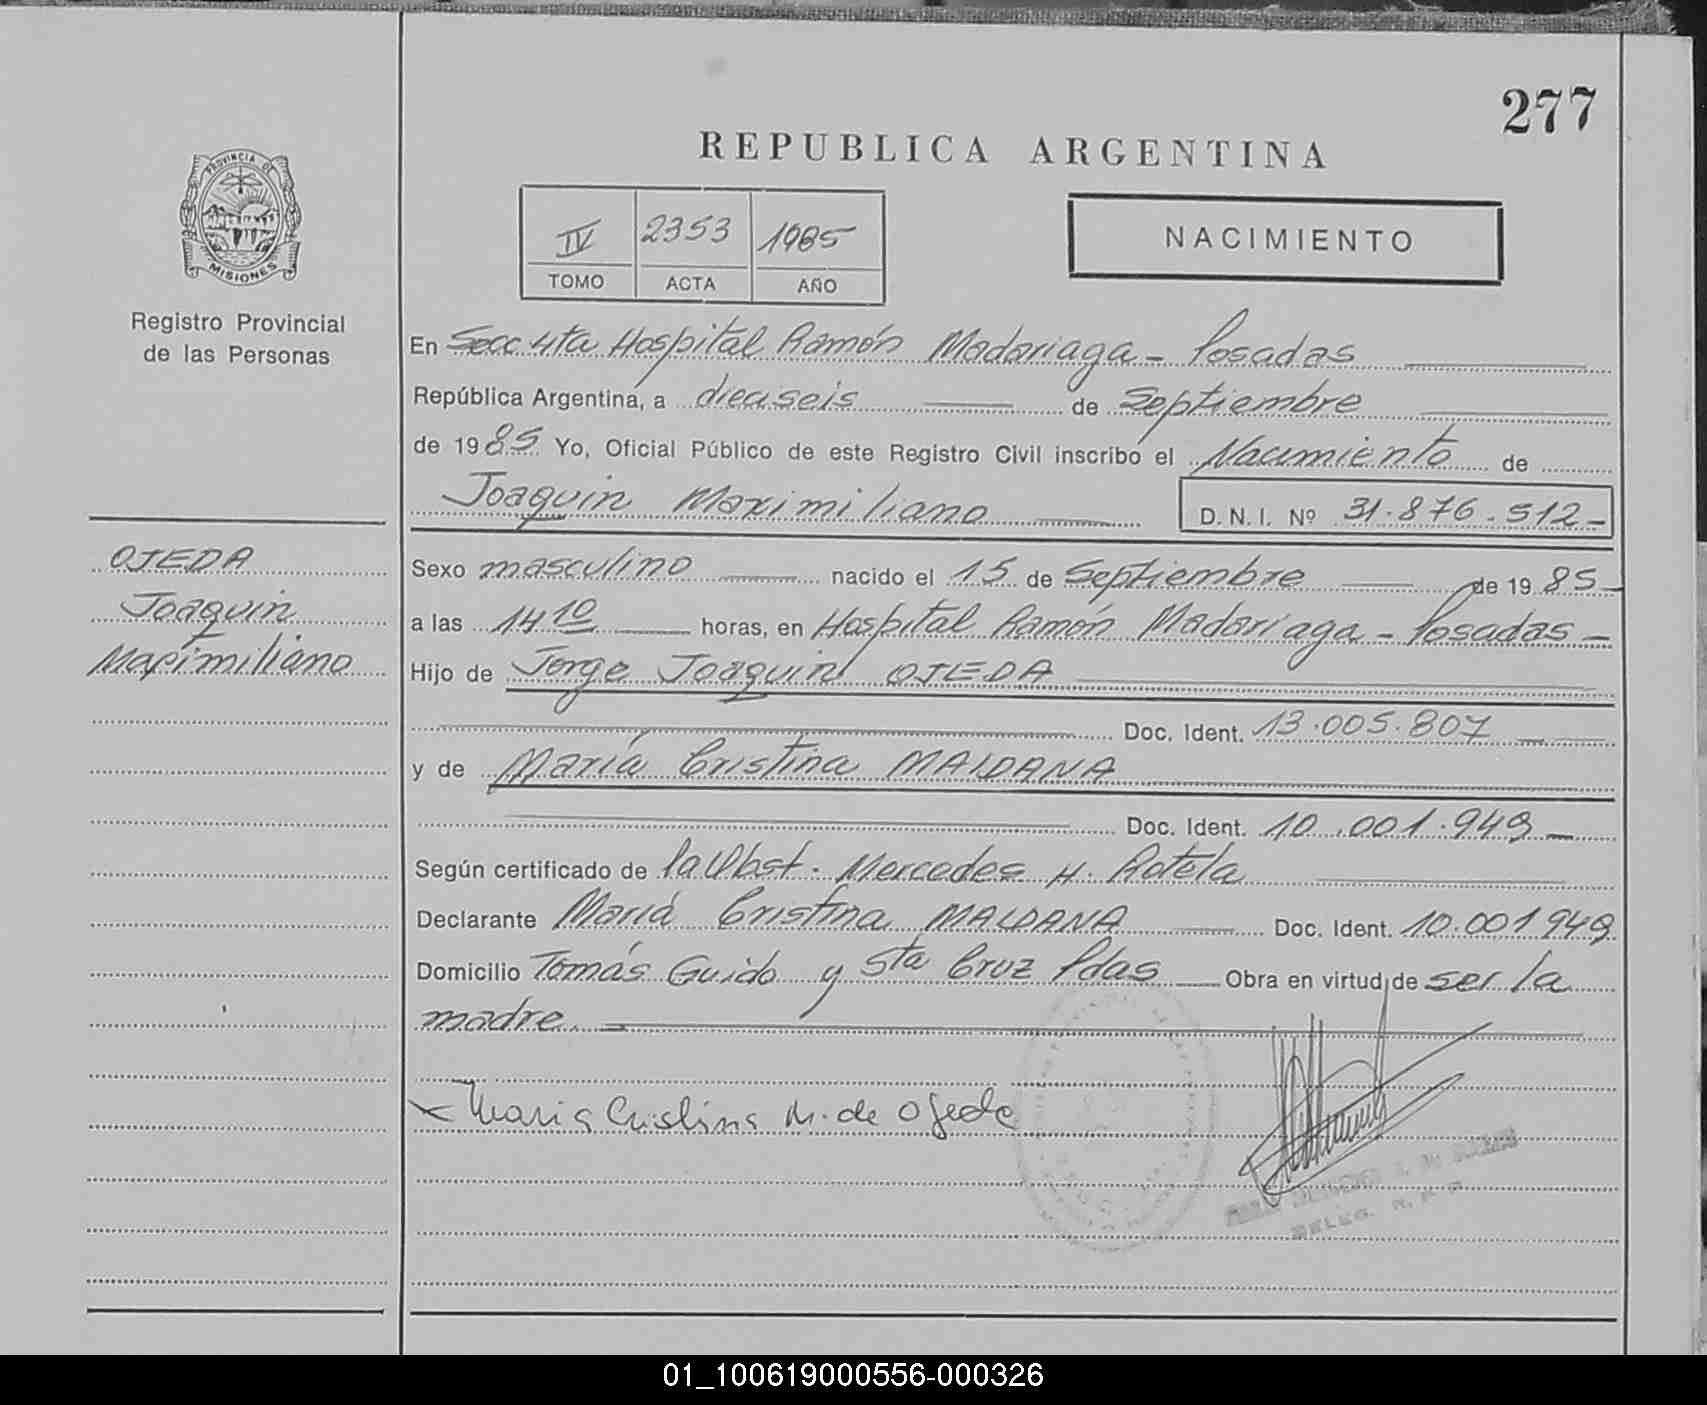 277
REPUBLICA ARGENTINA
PROVINCIA DE
MISIONES
Registro Provincial
de las Personas
IV 2353 1985
TOMO ACTA AÑO
NACIMIENTO
En Secc 4ta Hospital Ramón Madariaga - Posadas
República Argentina, a dieciseis de Septiembre
de 1985 Yo, Oficial Público de este Registro Civil inscribo el Nacimiento de
Joaquin Maximiliano D.N.I. Nº 31.876.512-
OJEDA
Joaquin
Maximiliano
Sexo masculino nacido el 15 de Septiembre de 1985-
a las 14 10 horas, en Hospital Ramón Madariaga - Posadas -
Hijo de Jorge Joaquin OJEDA
Doc. Ident. 13.005.807
y de María Cristina MALDANA
Doc. Ident. 10.001.949
Según certificado de la Obst. Mercedes H. Rotela
Declarante María Cristina MALDANA Doc. Ident. 10.001949
Domicilio Tomás Guido y Sta Cruz Pdas Obra en virtud de ser la
madre. -
Maria Cristina M. de Ojeda
DELEG. R. P. P.
01_100619000556-000326